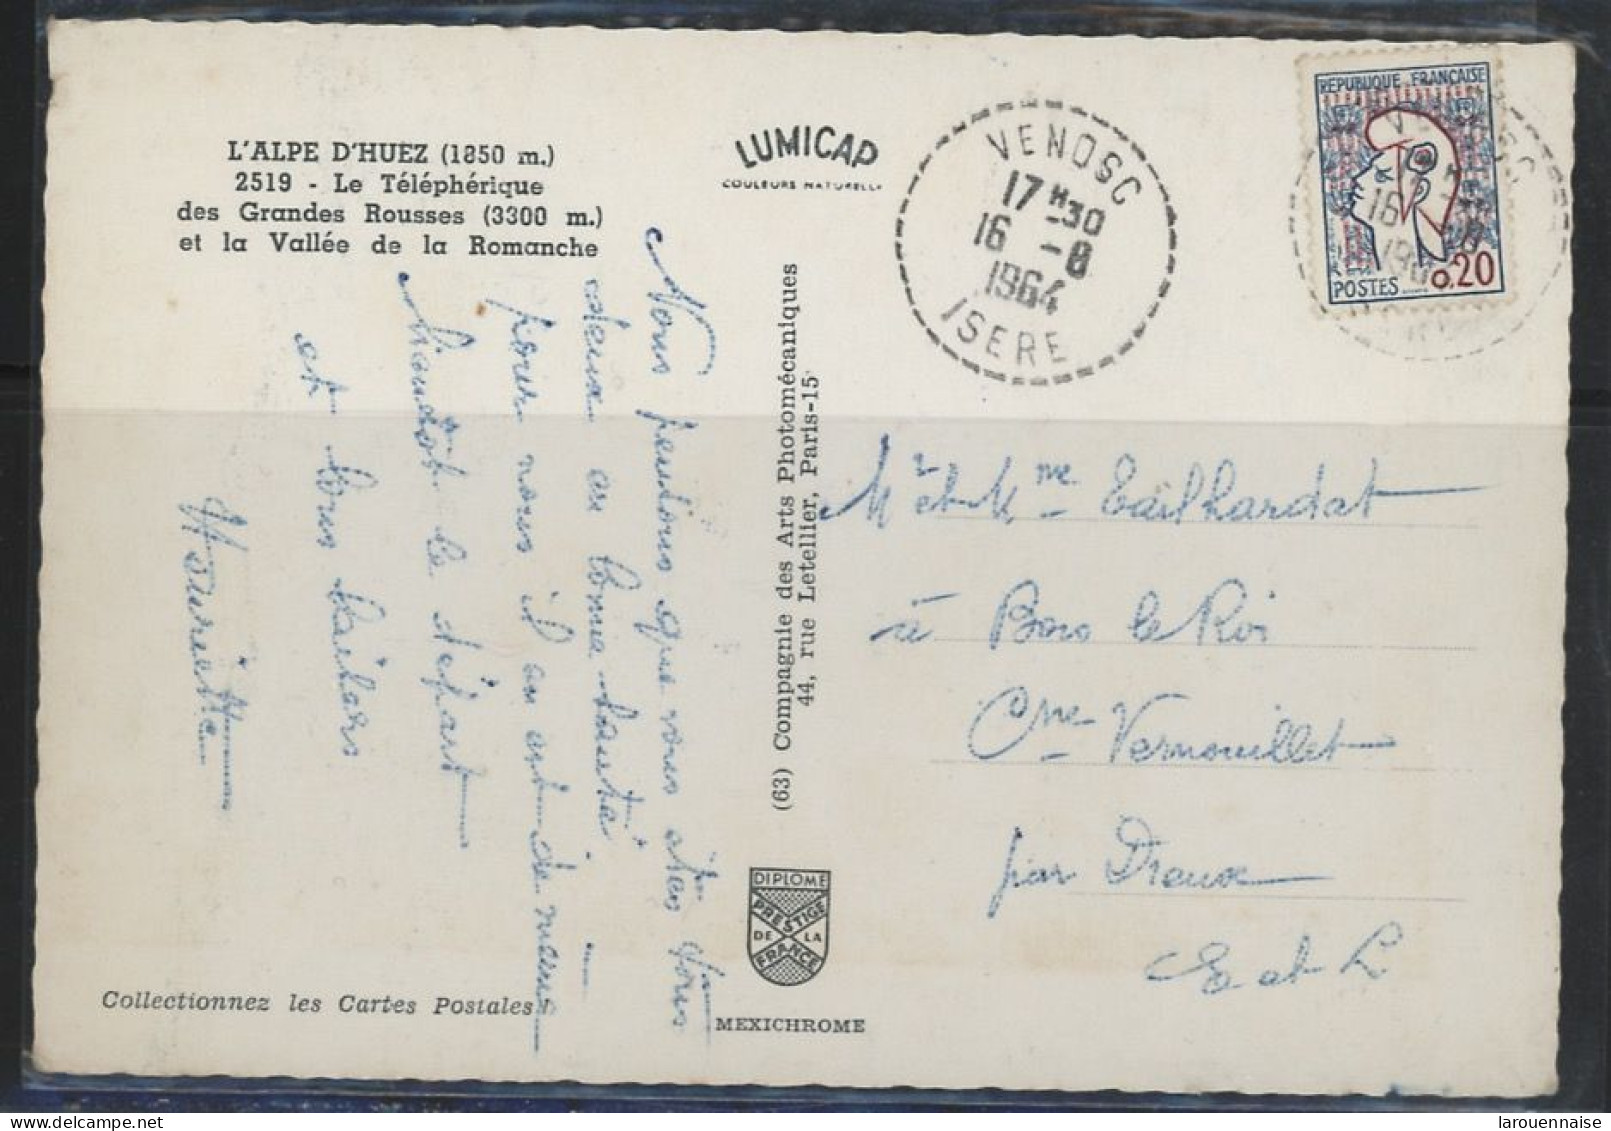 L'ALPE D'HUEZ (1850 m.)
2519 - Le Téléphérique
des Grandes Rousses (3300 m.)
et la Vallée de la Romanche
LUMICAP
COULEURS NATURELLES
VENOSC
17 H 30
16 -8
1964
ISERE
RÉPUBLIQUE FRANÇAISE
POSTES
0,20
VENOSC
16 -8
Nous pensons que vous êtes tous
deux en bonne santé.
pour nous il en est de même –
bientôt le départ
et bons baisers
Mauricette
(63) Compagnie des Arts Photomécaniques
44, rue Letellier, Paris-15
Mr et Mme Tailhardat
à Bois le Roi
Cne Vernouillet
par Dreux
E et L
DIPLOME
PRESTIGE
DE LA
FRANCE
Collectionnez les Cartes Postales !
MEXICHROME
larouennaise